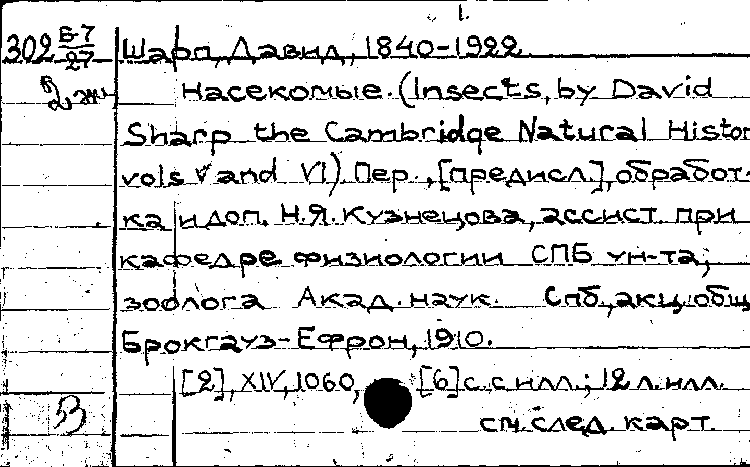 1.
302 Б-7/27 Шарп, Давид, 1840-1922
2 эк Насекомые. (Insects, by David
Sharp the Cambridge Natural Histor
vols V and VI). Пер., [предисл.], обработ-
ка и доп. Н.Я. Кузнецова, ассист. при
кафедре физиологии СПБ ун-та;
зоолога Акад. наук. Спб., акц. общ
Брокгауз-Ефрон, 1910.
[2], XIV, 1060, [6] с. с илл.; 12 л. илл.
В см. след. карт.